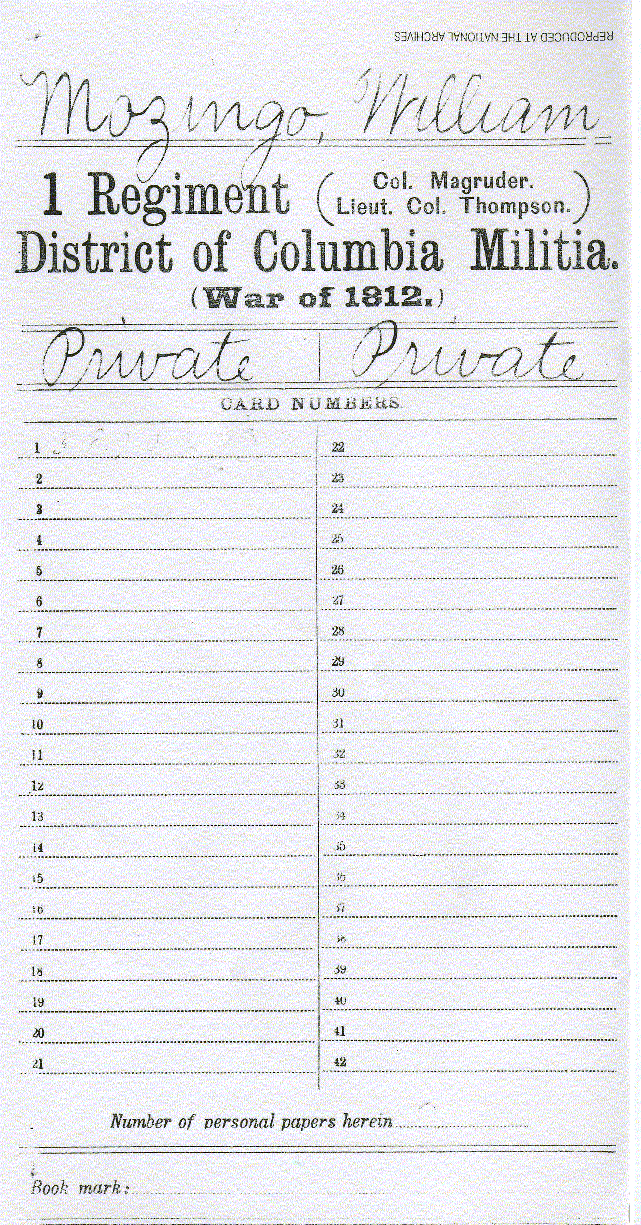 REPRODUCED AT THE NATIONAL ARCHIVES
Mozingo, William
1 Regiment (Col. Magruder. Lieut. Col. Thompson.)
District of Columbia Militia.
(War of 1812.)
Private | Private
CARD NUMBERS.
1 22
2 23
3 24
4 25
5 26
6 27
7 28
8 29
9 30
10 31
11 32
12 33
13 34
14 35
15 36
16 37
17 38
18 39
19 40
20 41
21 42
Number of personal papers herein
Book mark: